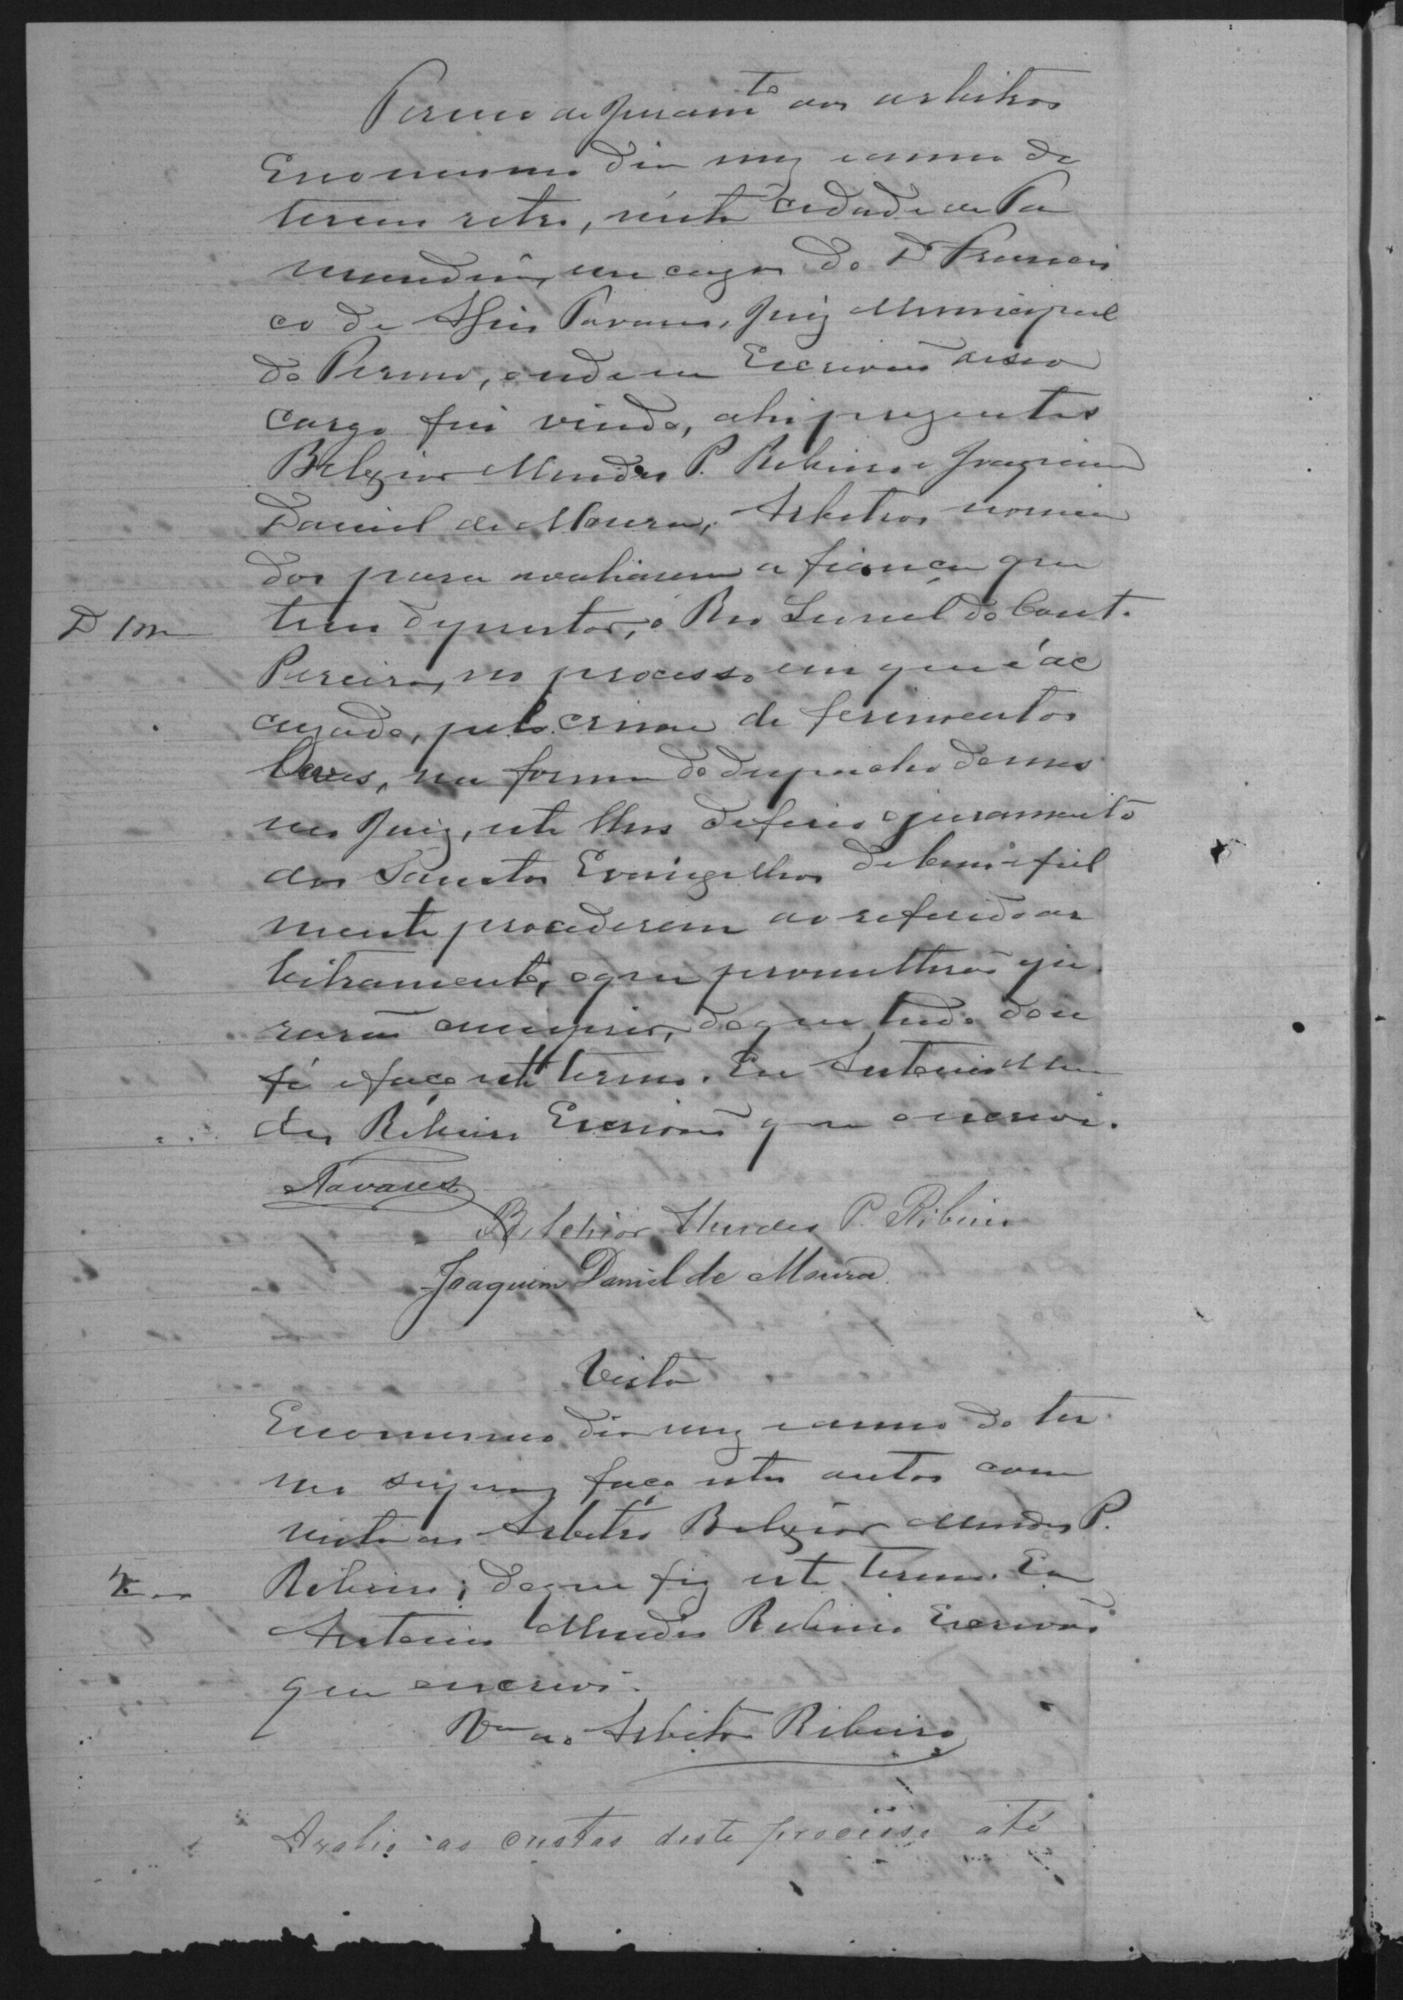 Termo de juram.to aos arbitros
Eno mesmo dia mez e anno do
termo retro, nésta cidade de Pa
em caza do Dr. Francis
co de Assis Tavares, Juiz Municipal
do Termo, onde eu Escrivaõ de seo
cargo fui vindo, ahi prezentes
Belxior Mendes P. Ribeiro e Joaquim
Daniel de Moura, Arbitros nomea
dos para avaliarem a fiança que
tem de prestar, o Reo do Cout.
Pereira, no processo em que é ac
cuzado, pelo crime de ferimentos
leves, na forma do despacho do mes
mo Juiz, este lhes deferio o juramento
dos Santos Evangelhos de bem e fiel
mente procederem ao referido ar
bitramento, o que prometteraõ e ju
raraõ cumprir, do que tudo dou
fé e faço este termo. Eu Antonio Men
des Ribeiro Escrivaõ que o escrevi.
Tavares
Belchior Mendes P. Ribeiro
Joaquim Daniel de Moura
Vista
Eno mesmo dia mez e anno do ter
mo supra, faço estes autos com
vista ao Arbitro Belxior Mendes P.
Ribeiro; do que fiz este termo. Eu
Antonio Mendes Ribeiro Escrivaõ
que o escrevi.
V.ta ao Arbitro Ribeiro
Avalio as custas deste processo até